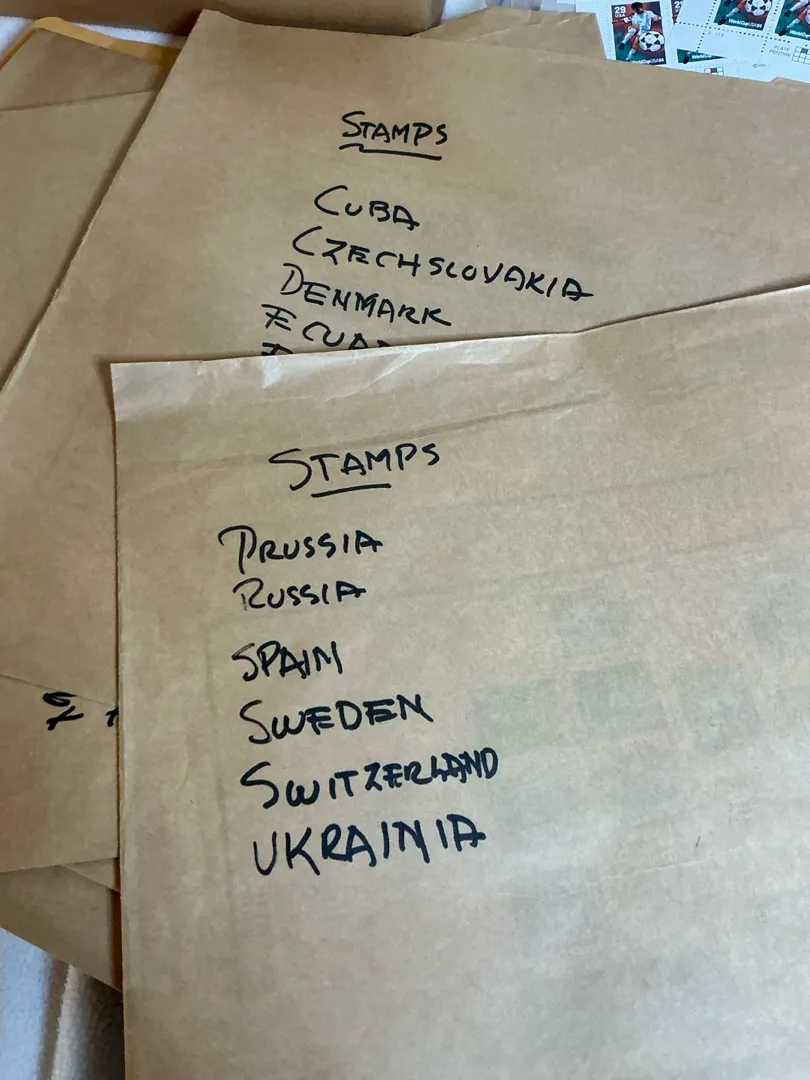 29
STAMPS
CUBA
CZECHSLOVAKIA
DENMARK
STAMPS
PRUSSIA
RUSSIA
SPAIN
SWEDEN
SWITZERLAND
UKRAINIA